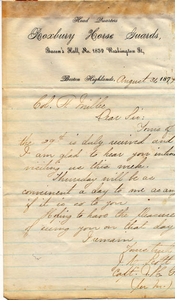 Head Quarters
Roxbury Horse Guards,
Bacon's Hall, No. 1859 Washington St,
Boston Highlands, August 31, 187
Col. A.
Dear Sir:
Yours of
the 29th is duly received and
I am glad to hear you intend
visiting us this week.
Thursday will be as
convenient a day to me as any
if it is so to you
Hoping to have the pleasure
of seeing you on that day
I remain
Yours truly
Capt.